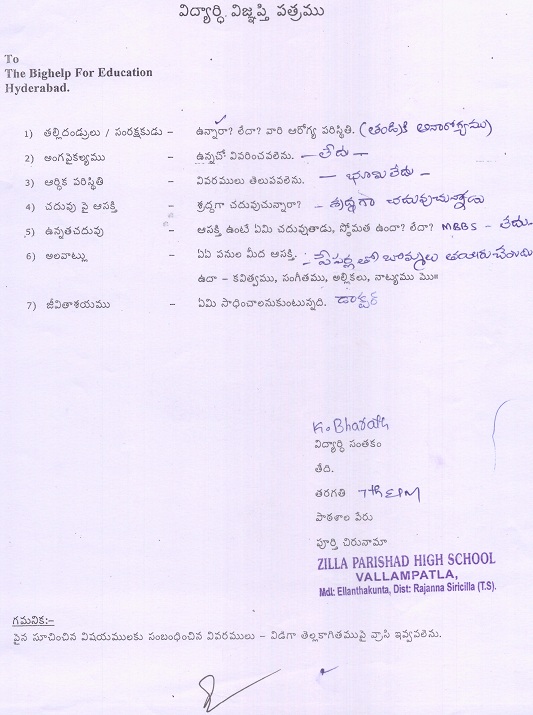 విద్యార్ధి విజ్ఞప్తి పత్రము
To
The Bighelp For Education
Hyderabad.
1) తల్లిదండ్రులు / సంరక్షకుడు – ఉన్నారా? లేదా? వారి ఆరోగ్య పరిస్థితి. (తండ్రికి అనారోగ్యము)
2) అంగవైకల్యము – ఉన్నచో వివరించవలెను. – లేదు –
3) ఆర్థిక పరిస్థితి – వివరములు తెలుపవలెను. – భూమి లేదు –
4) చదువు పై ఆసక్తి – శ్రద్ధగా చదువుచున్నారా? – శ్రద్ధగా చదువుచున్నాడు
5) ఉన్నతచదువు – ఆసక్తి ఉంటే ఏమి చదువుతాడు, స్థోమత ఉందా? లేదా? MBBS – లేదు–
6) అలవాట్లు – ఏఏ పనుల మీద ఆసక్తి. – పేపర్ల తో బొమ్మలు తయారు చేయుట
ఉదా – కవిత్వము, సంగీతము, అల్లికలు, నాట్యము మొ॥
7) జీవితాశయము – ఏమి సాధించాలనుకుంటున్నది. డాక్టర్
K. Bharath
విద్యార్ధి సంతకం
తేది.
తరగతి 7th E/M
పాఠశాల పేరు
పూర్తి చిరునామా
ZILLA PARISHAD HIGH SCHOOL
VALLAMPATLA,
Mdl: Ellanthakunta, Dist: Rajanna Siricilla (T.S).
గమనిక:–
పైన సూచించిన విషయములకు సంబంధించిన వివరములు – విడిగా తెల్లకాగితముపై వ్రాసి ఇవ్వవలెను.